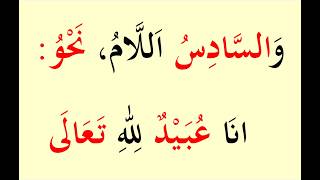 وَالسَّادِسُ اَللَّامُ، نَحْوُ:
انَا عُبَيْدٌ لِلّٰهِ تَعَالَى